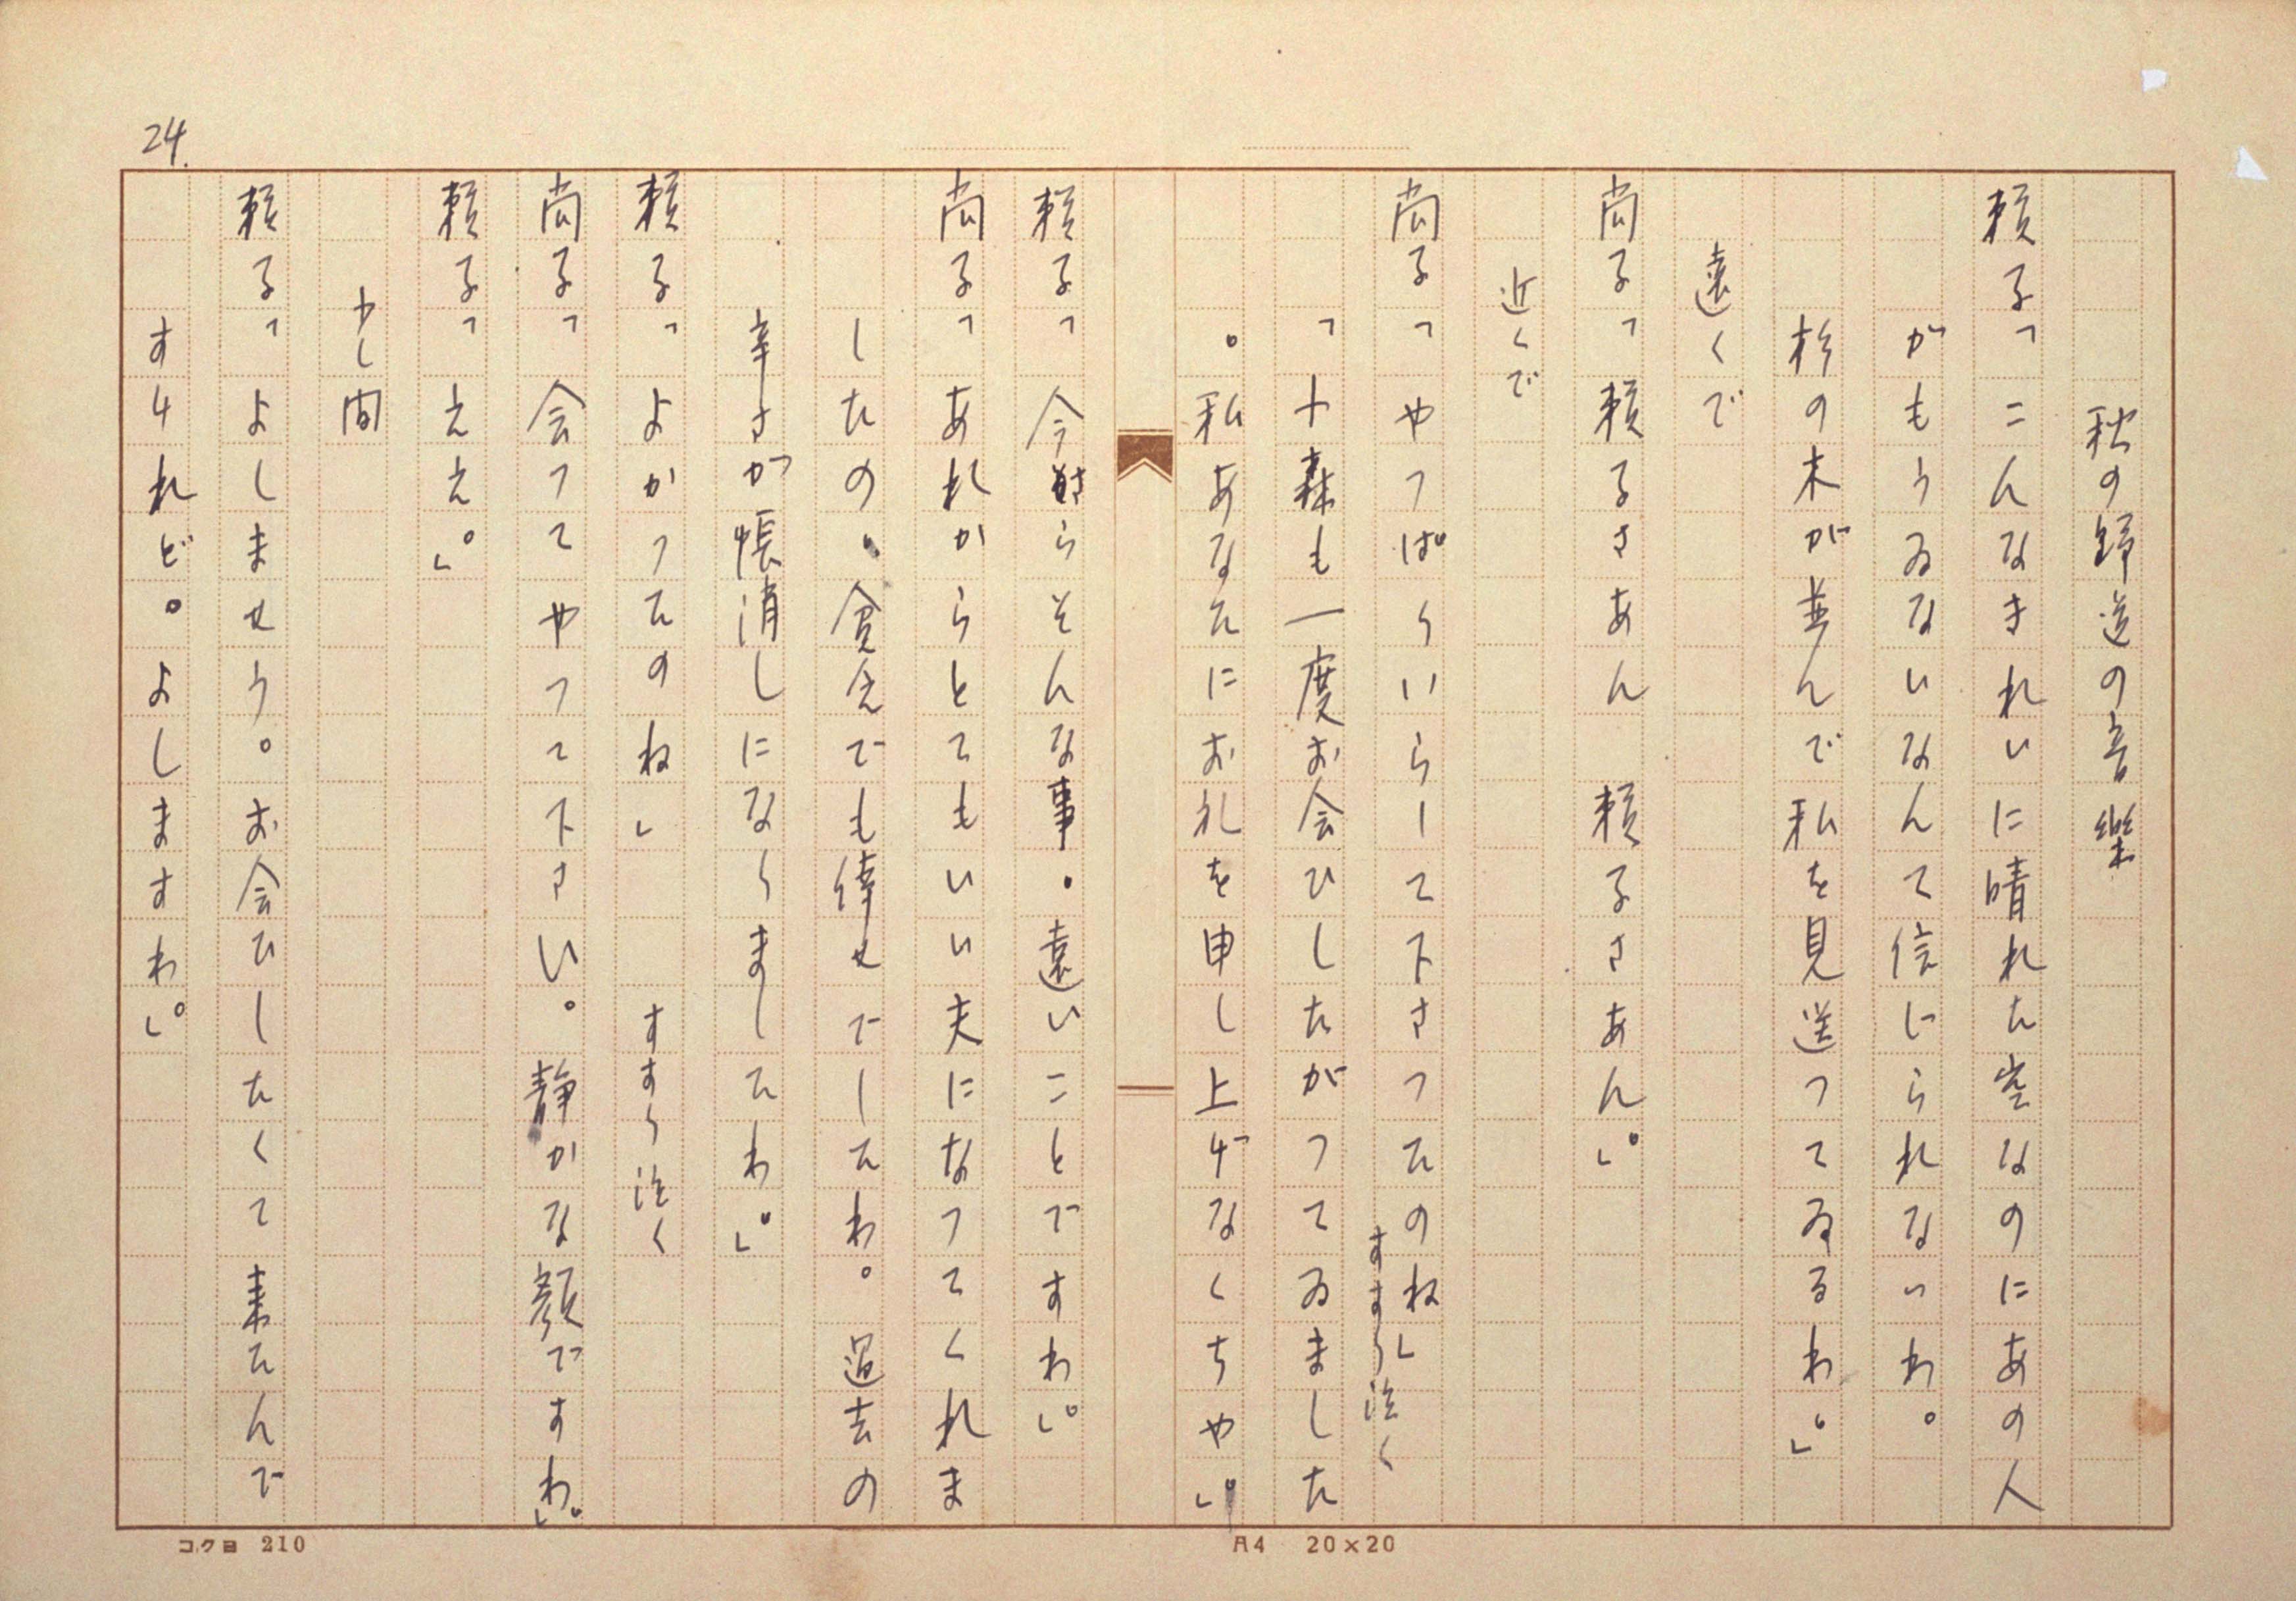 24.
秋の歸道の音樂
頼子「こんなきれいに晴れた空なのにあの人
がもうゐないなんて信じられないわ。
杉の木が並んで私を見送つてゐるわ。」
遠くで
尚子「頼子さあん 頼子さあん。」
近くで
尚子「やつぱりいらして下さつたのね」すすり泣く
「小森も一度お会ひしたがつてゐました
。私あなたにお礼を申し上げなくちや。」
頼子「今さらそんな事・遠いことですわ。」
尚子「あれからとてもいい夫になつてくれま
したの。貧乏でも倖せでしたわ。過去の
辛さが帳消しになりましたわ。」
頼子「よかつたのね」 すすり泣く
尚子「会つてやつて下さい。静かな顔ですわ。」
頼子「ええ。」
少し間
頼子「よしませう。お会ひしたくて来たんで
すけれど。よしますわ。」
コクヨ 210
A4 20×20